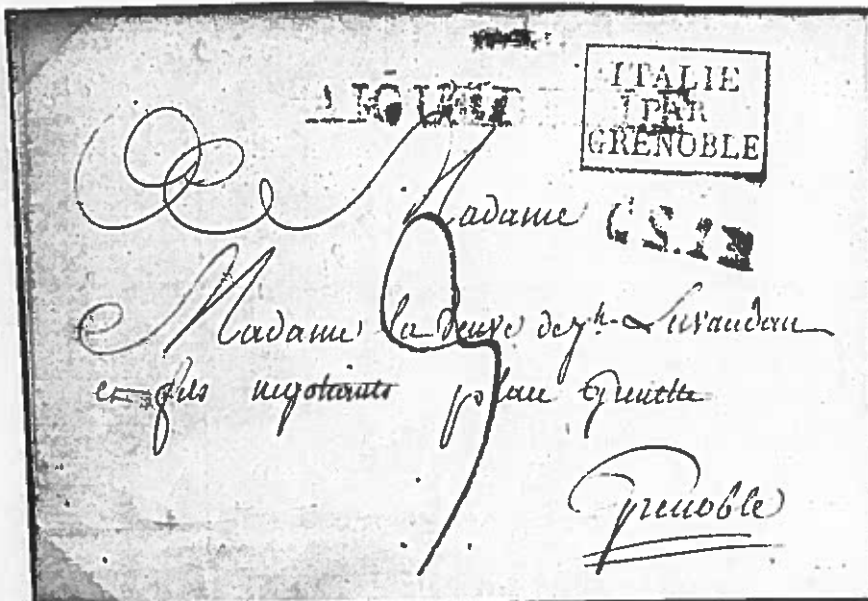 ITALIE
PAR
GRENOBLE
Madame
C.S.1
Madame la Veuve de
et fils négotiants place Grenette
Grenoble